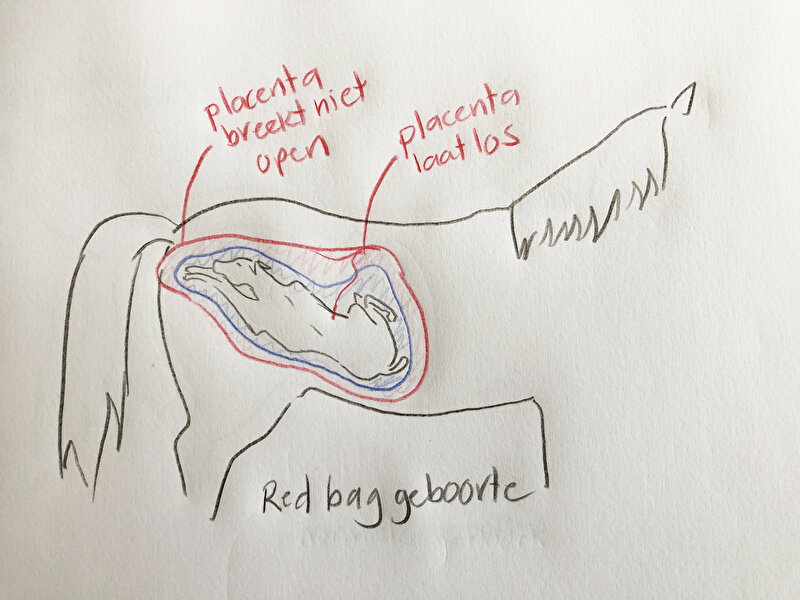 placenta
breekt niet
open
placenta
laat los
Red bag geboorte